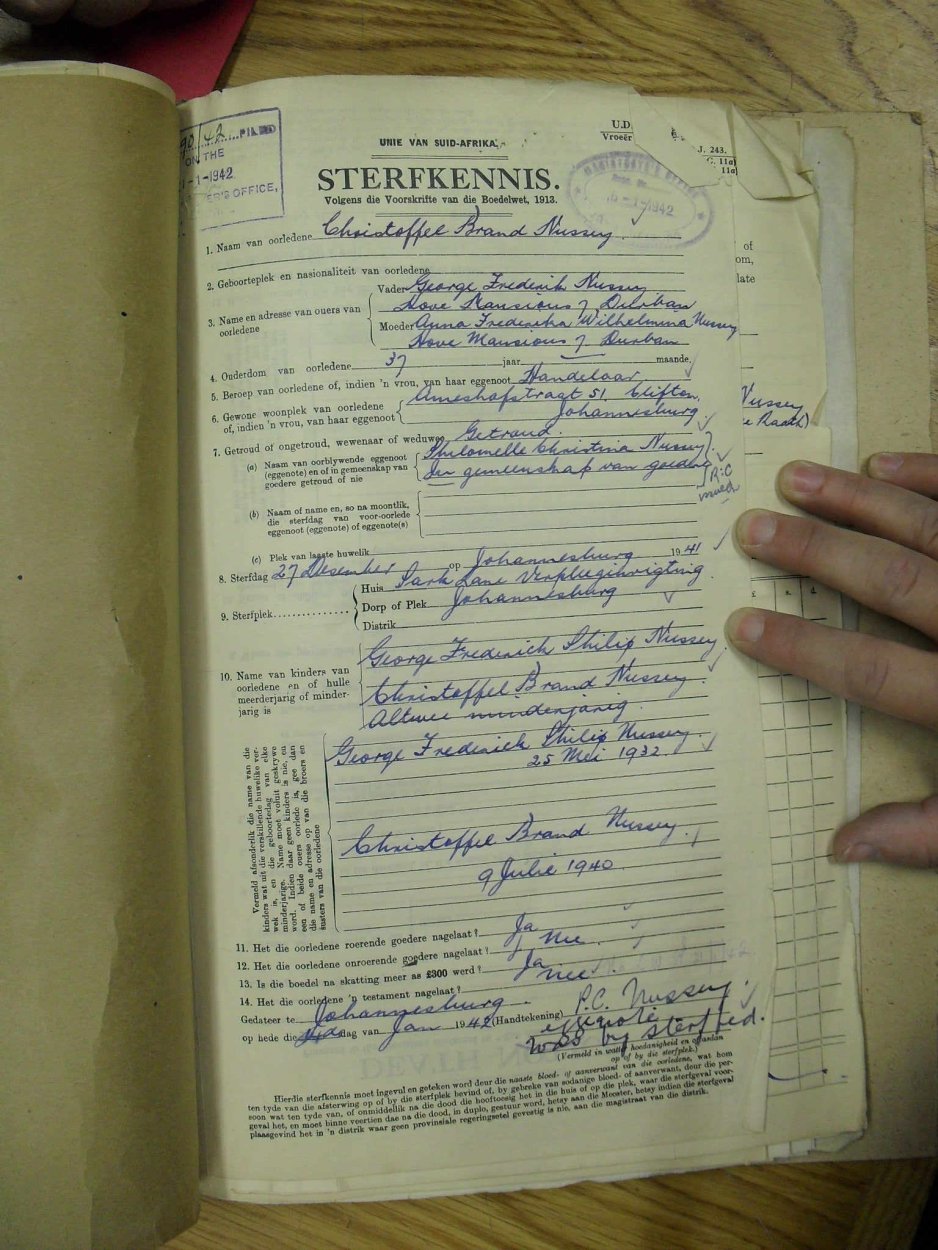 42 FILED
ON THE
-1-1942
ER'S OFFICE,
U.D.
Vroeër
J. 243.
11a
UNIE VAN SUID-AFRIKA.
STERFKENNIS.
Volgens die Voorskrifte van die Boedelwet, 1913.
MAGISTRATE'S OFFICE
-1-1942
1. Naam van oorledene Christoffel Brand Nussey
2. Geboorteplek en nasionaliteit van oorledene
3. Name en adresse van ouers van oorledene
Vader George Frederik Nussey
Hove Mansions 7 Durban
Moeder Anna Frederika Wilhelmina Nussey
Hove Mansions 7 Durban
4. Ouderdom van oorledene 37 jaar — maande,
5. Beroep van oorledene of, indien 'n vrou, van haar eggenoot Handelaar
6. Gewone woonplek van oorledene
of, indien 'n vrou, van haar eggenoot
Ameshofstraat 51, Clifton,
Johannesburg
7. Getroud of ongetroud, wewenaar of weduwee Getroud.
(a) Naam van oorblywende eggenoot
(eggenote) en of in gemeenskap van
goedere getroud of nie
Philomelle Christina Nussey
In gemeenskap van goedere
R.C
(b) Naam of name en, so na moontlik,
die sterfdag van voor-oorlede
eggenoot (eggenote) of eggenote(s)
(c) Plek van laaste huwelik
8. Sterfdag 27 Desember op Johannesburg 1941
9. Sterfplek
Huis Park Lane Verpleeginrigting
Dorp of Plek Johannesburg
Distrik
10. Name van kinders van
oorledene en of hulle
meerderjarig of minder-
jarig is
George Frederick Philip Nussey
Christoffel Brand Nussey.
Altwee minderjarig.
Vermeld afsonderlik die name van die
kinders wat uit die verskillende huwelike ver-
wek is, en die geboortedag van elke
minderjarige. Name moet voluit geskrywe
word. Indien daar geen kinders is nie, en
een of beide ouers oorlede is, gee dan
die name en adresse op van die broers en
susters van die oorledene
George Frederick Philip Nussey.
25 Mei 1932
Christoffel Brand Nussey.
9 Julie 1940.
11. Het die oorledene roerende goedere nagelaat? Ja
12. Het die oorledene onroerende goedere nagelaat? Nee.
13. Is die boedel na skatting meer as £300 werd? Ja
14. Het die oorledene 'n testament nagelaat? nee
Gedateer te Johannesburg
op hede die dag van Jan 1942 (Handtekening) P.C. Nussey.
eggenote
was by sterfbed.
(Vermeld in watter hoedanigheid en of
op of by die sterfplek.)
Hierdie sterfkennis moet ingevul en geteken word deur die naaste bloed- of aanverwant van die oorledene, wat hom
ten tyde van die afsterwing op of by die sterfplek bevind of, by gebreke van sodanige bloed- of aanverwant, deur die per-
soon wat ten tyde van, of onmiddellik na die dood die hooftoesig het in die huis of op die plek, waar die sterfgeval voor-
geval het, en moet binne veertien dae na die dood, in duplo, gestuur word, hetsy aan die Meester, hetsy indien die sterfgeval
plaasgevind het in 'n distrik waar geen provinsiale regeringsetel gevestig is nie, aan die magistraat van die distrik.
of
om,
late
Nussey
Raath)
s. d.